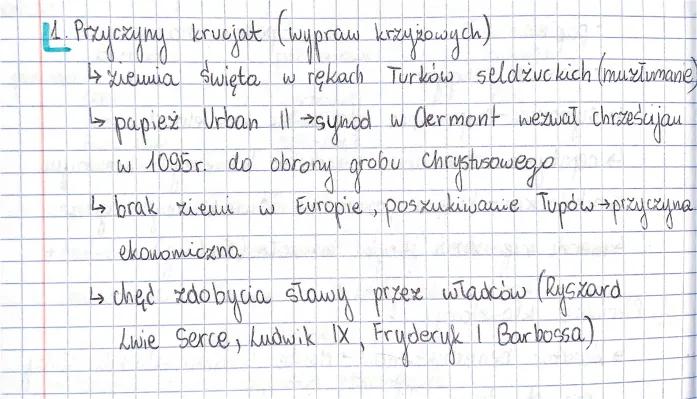 1. Przyczyny krucjat (wypraw krzyżowych)
↳ ziemia święta w rękach Turków seldżuckich (muzłumanie)
↳ papież Urban II → synod w Clermont wezwał chrześcijan
w 1095r. do obrony grobu Chrystusowego
↳ brak ziemi w Europie, poszukiwanie łupów → przyczyna
ekonomiczna.
↳ chęć zdobycia sławy przez władców (Ryszard
Lwie Serce, Ludwik IX, Fryderyk I Barbossa)